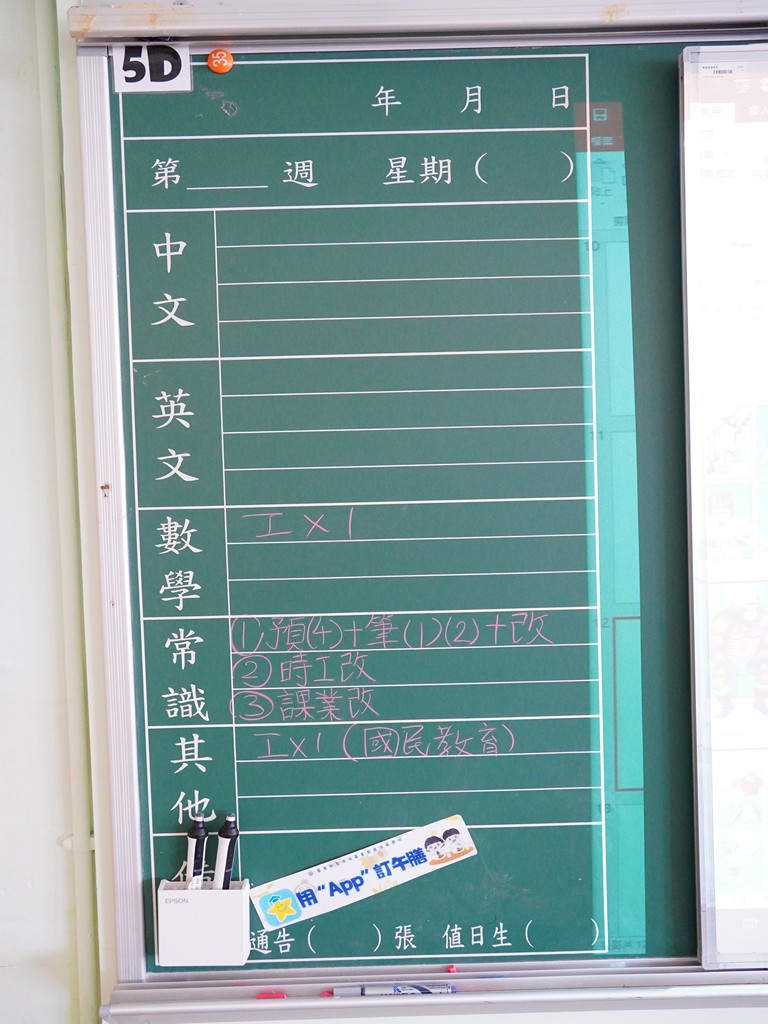 5D
35
年 月 日
第____週 星期( )
中文
英文
數學
工×1
常識
①預(4)+筆(1)(2)+改
②時工改
③課業改
其他
工×1(國民教育)
用“App”訂午膳
EPSON
通告( )張 值日生( )
檔案
貼上
10
11
12
13